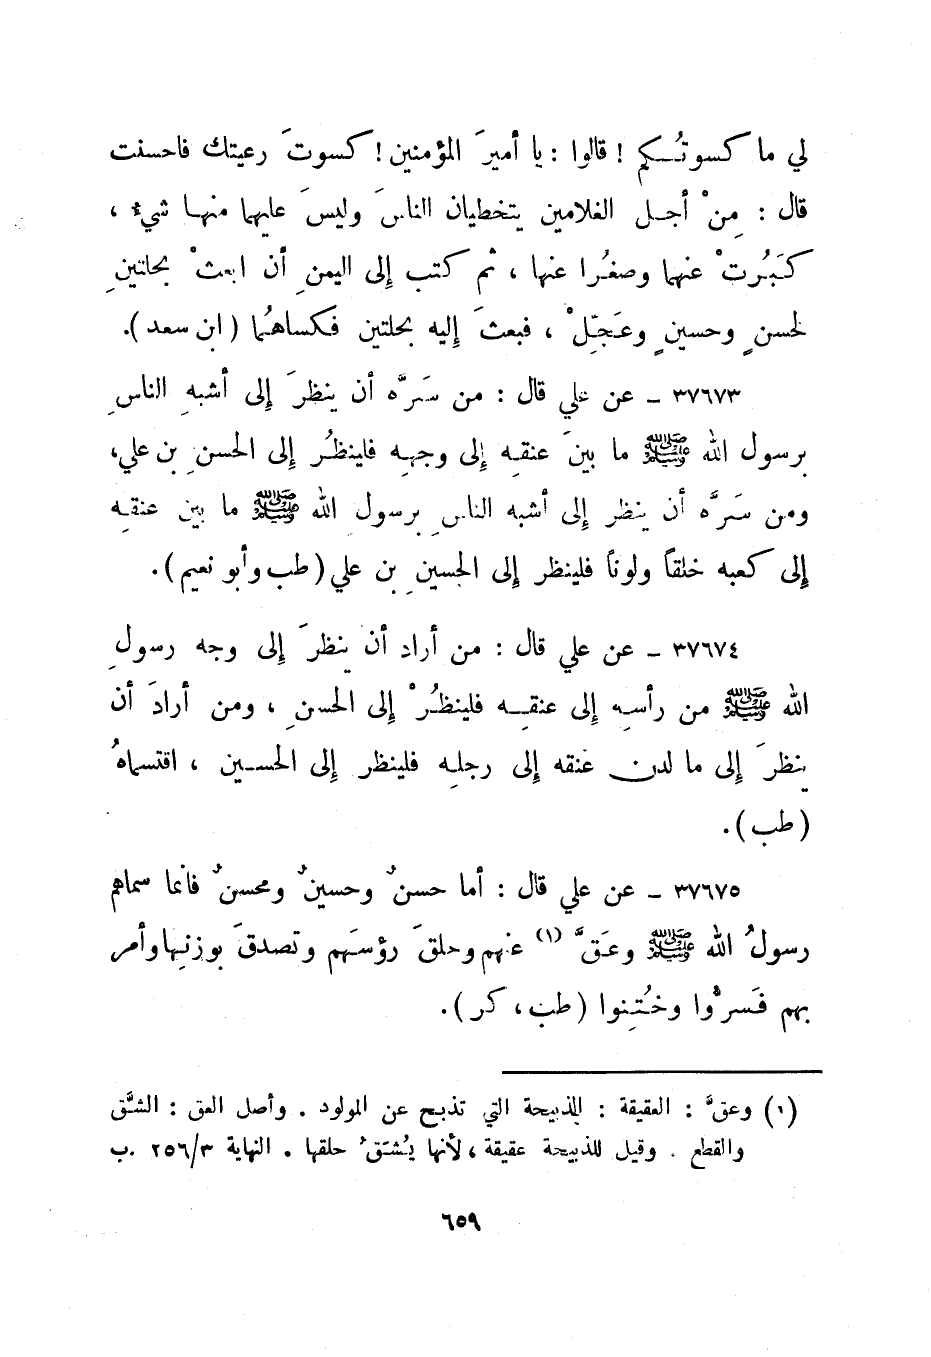 لي ما كسوتُـكم ! قالوا : يا أميرَ المؤمنين ! كسوتَ رعيتك فاحسنت
قال : مِنْ أجـل الغلامين يتخطيان الناسَ وليسَ عليهما منهـا شيءٌ ،
كَبُرتْ عنهما وصغُرا عنها ، ثم كتب إلى اليمنِ أن ابعثْ بحلتينِ
لحسنٍ وحسينٍ وعَجِّلْ ، فبعثَ إليه بحلتين فكساهُما ( ابن سعد ).
٣٧٦٧٣ ـ عن علي قال : من سَرَّه أن ينظرَ إلى أشبهِ الناسِ
برسول الله ﷺ ما بينَ عنقـِه إلى وجهـِه فلينظُر إلى الحسنِ بن علي،
ومن سَرَّه أن ينظر إلى أشبه الناسِ برسول الله ﷺ ما بين عنقـه
إلى كعبه خلقاً ولوناً فلينظر إلى الحسينِ بن علي ( طب وأبو نعيم ).
٣٧٦٧٤ ـ عن علي قال : من أراد أن ينظرَ إلى وجه رسولِ
الله ﷺ من رأسـِه إلى عنقـِـه فلينظُرْ إلى الحسنِ ، ومن أرادَ أن
ينظرَ إلى ما لدن عنقه إلى رجلـِه فلينظر إلى الحسـين ، اقتسماهُ
( طب ).
٣٧٦٧٥ ـ عن علي قال : أما حسنٌ وحسينٌ ومحسنٌ فانما سماهم
رسولُ الله ﷺ وعَقَّ (١) عنهم وحلقَ رؤسَهم وتصدقَ بوزنِها وأمر
بهم فَسرُّوا وخُتِنوا ( طب ، كر ).
(١) وعقَّ : العقيقة : الذبيحة التي تذبح عن المولود . وأصل العق : الشَّق
والقطع . وقيل للذبيحة عقيقة ، لأنها يُشَقُّ حلقها . النهاية ٢٥٦/٣ .ب
٦٥٩